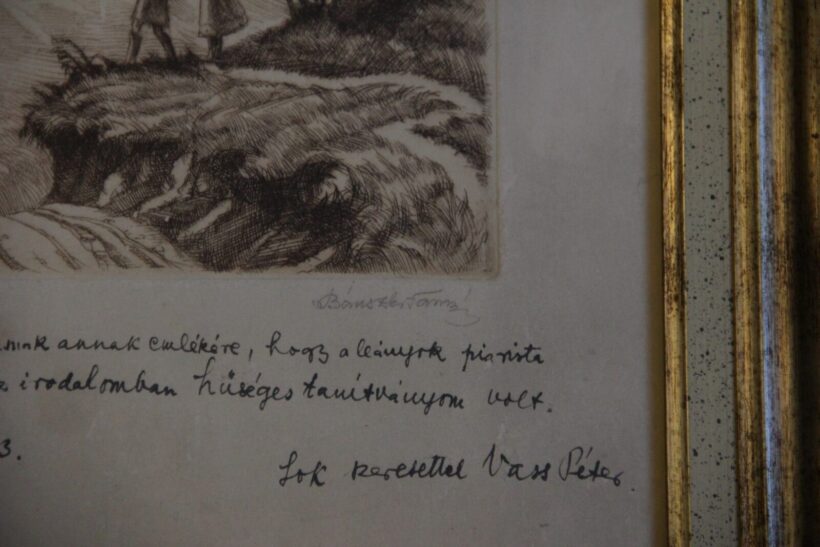 Bánszki Tamás
annak emlékére, hogy a leányok piarista
irodalomban hűséges tanítványom volt.
3.
Sok szeretettel Vass Péter.